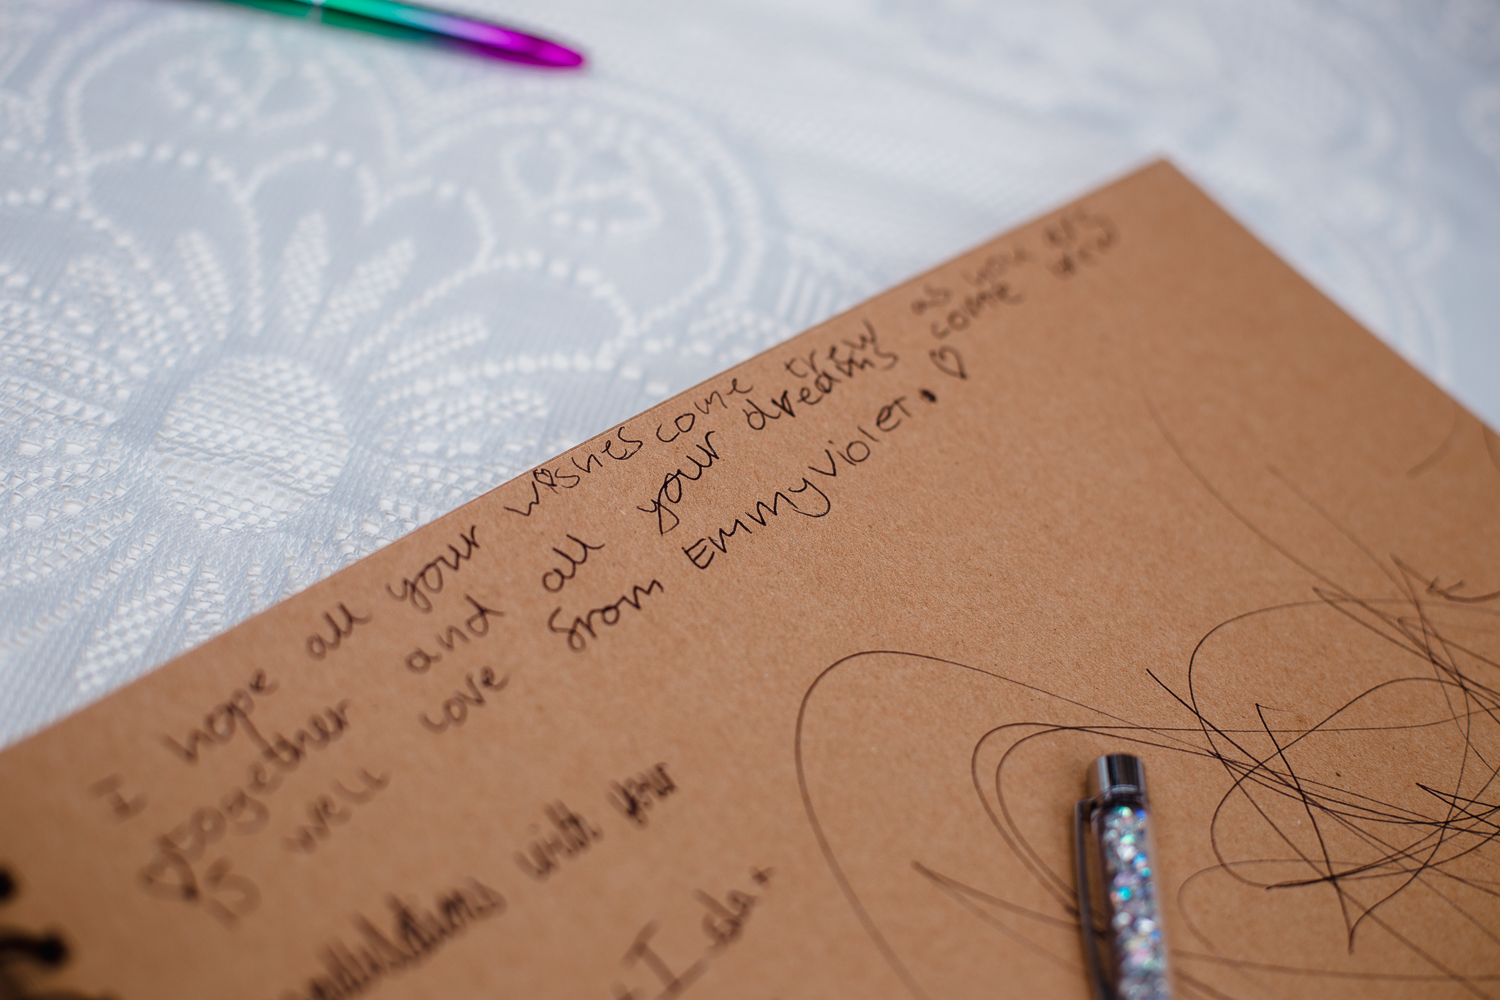 I hope all your wishes come trew as you
together and all your dreams come
is well love from Emmy Violet. ♡
with your
I